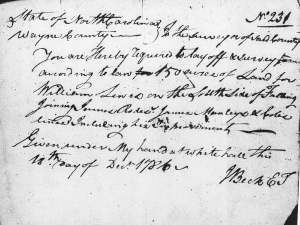 State of North Carolina No. 231
Wayne County To the Surveyor of said County
You are Hereby required to lay off & survey
according to law 150 acres of Land for
William on the South Side of
joining James James Manley &
Including his Improvements
Given under My hand at white hall this
10th day of Decr. 1786
J Beck E T